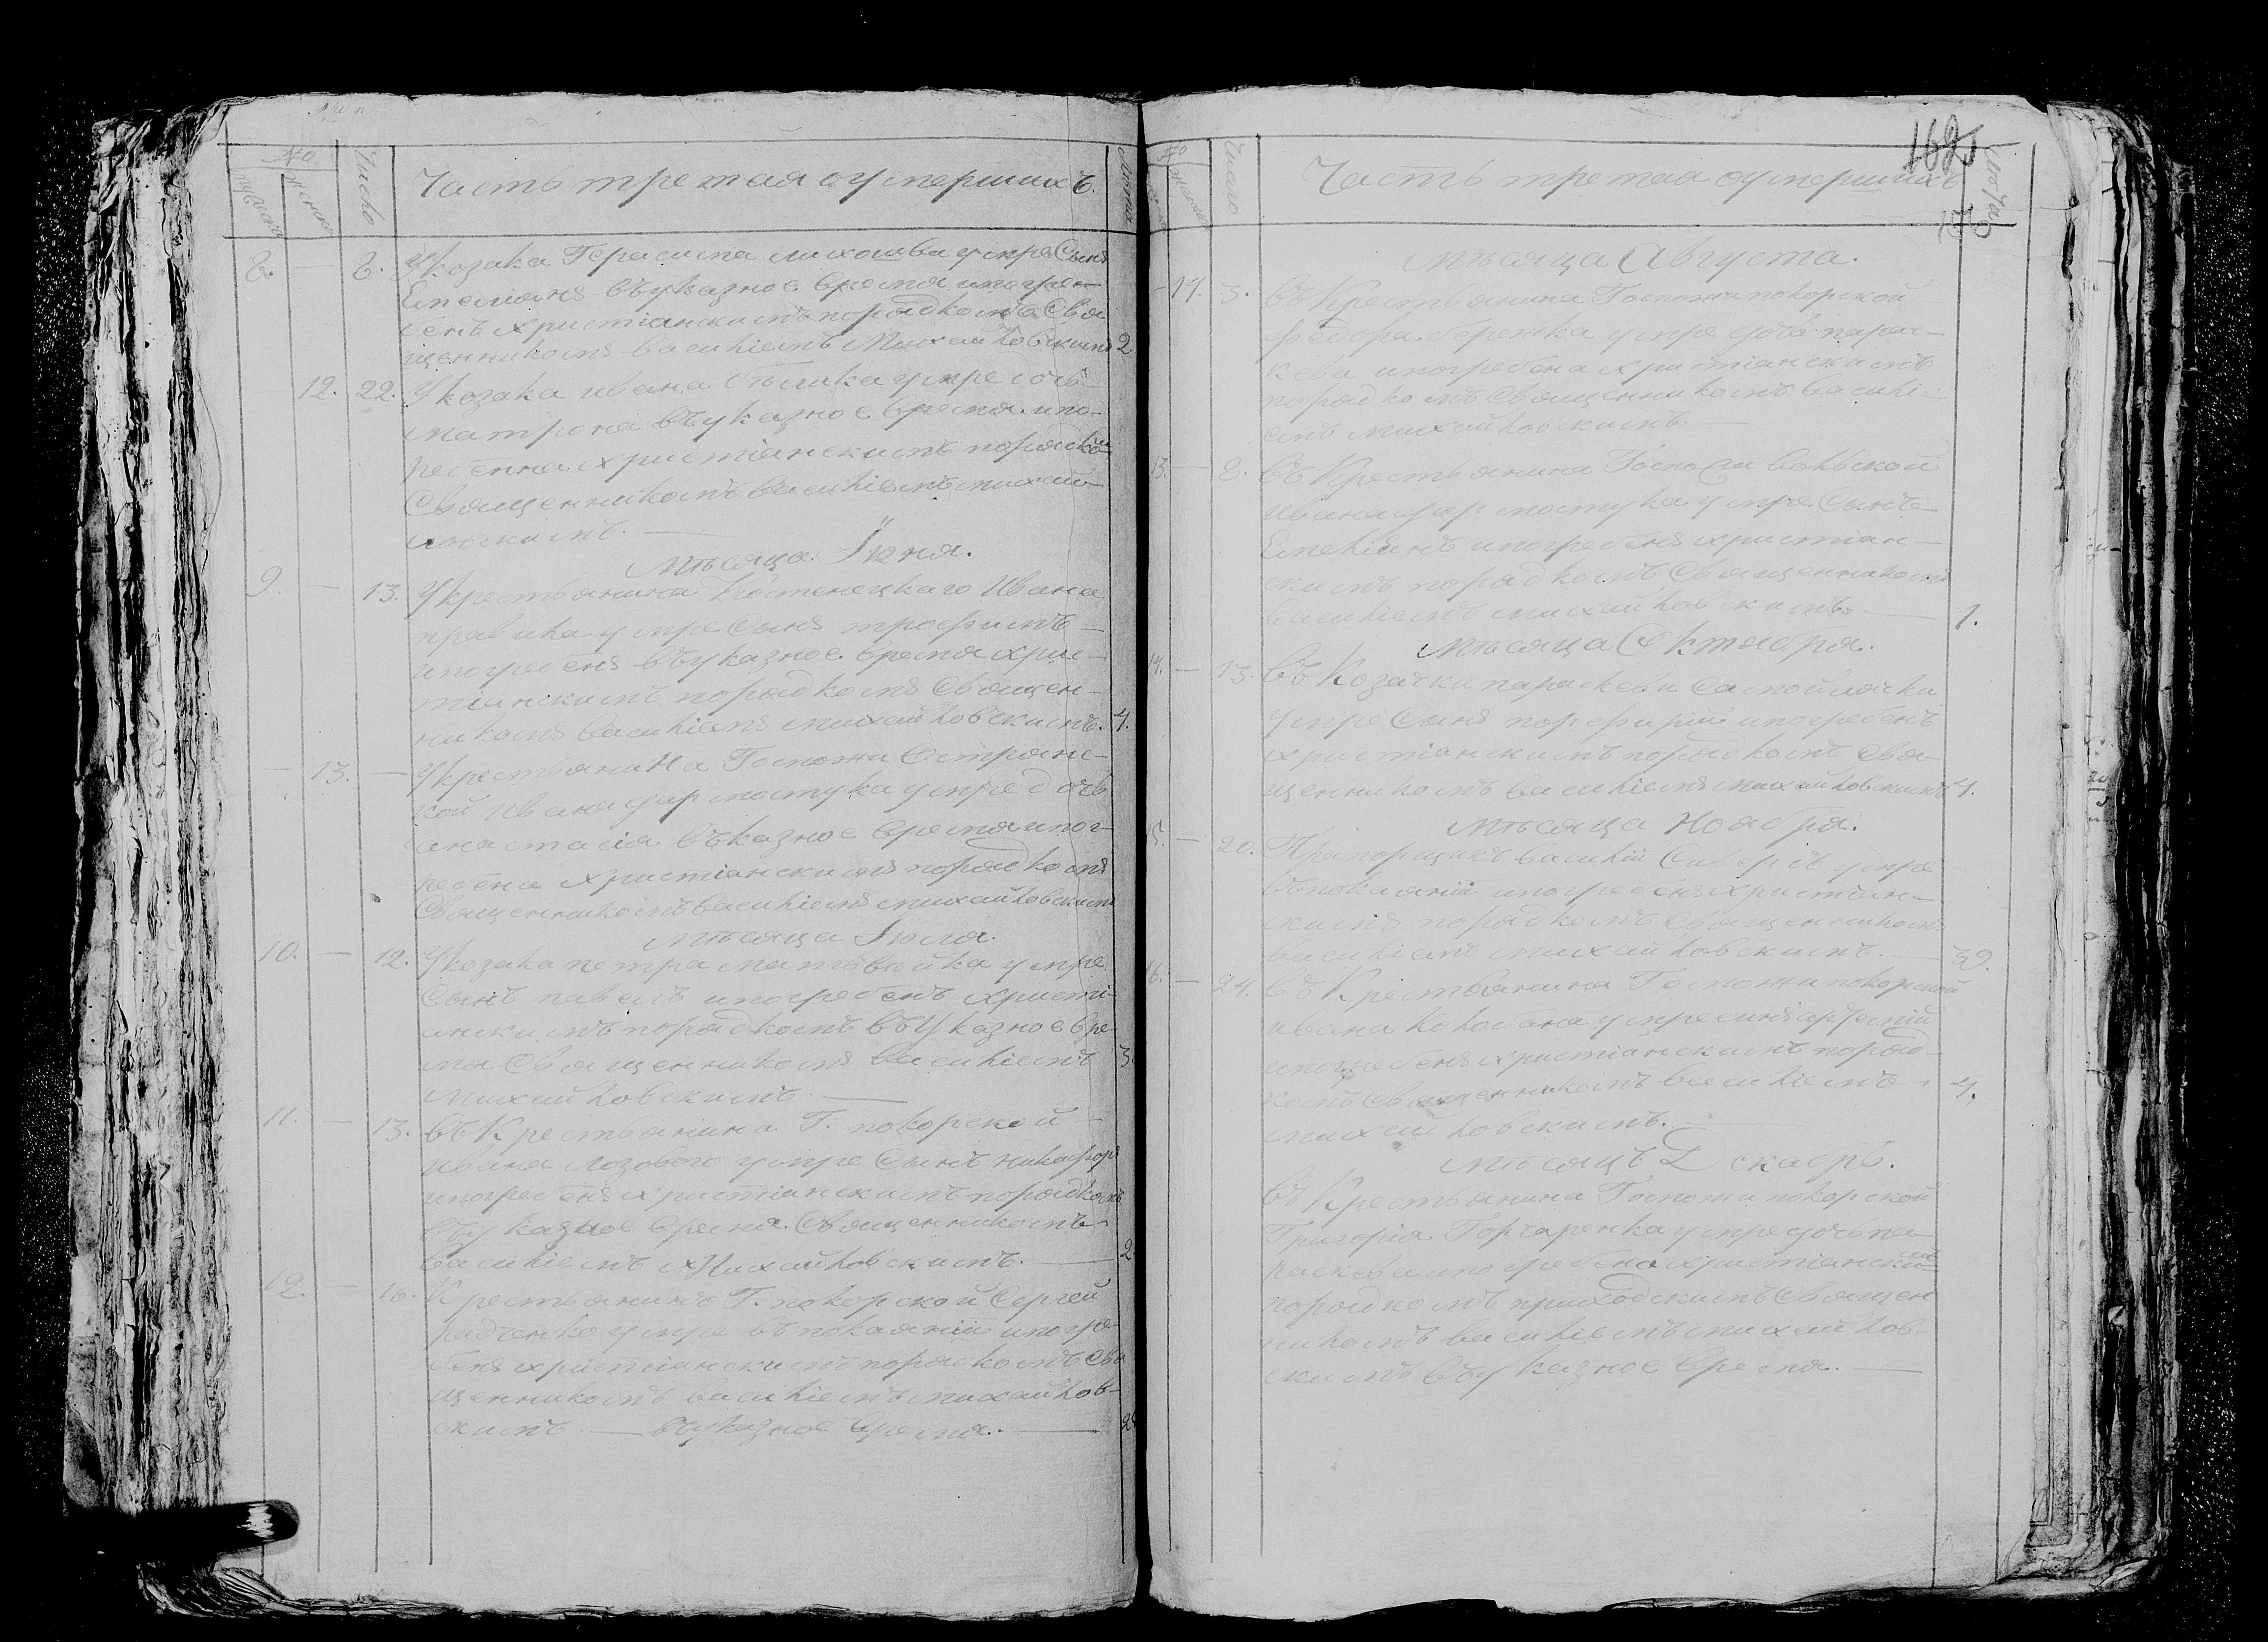 № Число Часть третая оумершихъ. Лѣта
мужеска женска
8. — 8. У козака Герасима лихошва умре Сынъ
Емелианъ въ указное время и погре-
бенъ христіанскимъ порядкомъ Свя
щенникомъ Василіемъ Михайловскимъ 2
12. 22. У козака Ивана умре дочь
матрона въ указное время и пог-
ребенна христіанскимъ порядком
Священникомъ Василіемъ михай-
ловскимъ. —
Мѣсяца Іюня.
9. — 13. У крестьянина Костенецкаго Ивана
правика умре Сынъ трофимъ —
и погребенъ въ указное время хрис-
тіанскимъ порядкомъ Священ-
никомъ Василіемъ михайловскимъ. 4.
— 13. — У крестьянина Госпожи Острянс-
кой Ивана фармотука умре дочь
анастасія въ казное время и пог-
ребена христіанскимъ порядкомъ
Священникомъ Василіемъ михайловскимъ
Мѣсяца Іюля.
10. — 12. У козака петра матвѣюйка умре
Сынъ павелъ и погребенъ христі-
анскимъ порядкомъ въ Указное вре-
мя Священникомъ Василіемъ 3.
михайловскимъ —
11. — 13. Въ Крестьянина Г. покорской —
Ивана Лозового умре Сынъ никифоръ
и погребенъ христіанскимъ порядкомъ
въ указное время Священникомъ
Василіемъ Михайловскимъ. — 2
12. — 16. Крестьянинъ Г. покорской Сергей
радченко умре въ покаяніи и погре-
бенъ христіанскимъ порядкомъ Свя
щенникомъ Василіемъ михайлов-
скимъ — въ указное время. —
162
№ Число Часть третая оумершихъ Лѣта
женска
Мѣсяца Августа.
— 14. 5. Въ Крестьянина Госпожи покорской
федора умре дочь парас-
кева и погребена христіанскимъ
порядкомъ Священникомъ Василі-
емъ михайловскимъ. —
13. — 8. Въ Крестьянина
Ивана фармотука умре Сынъ
Емеліанъ и погребенъ христіан-
скимъ порядкомъ Священникомъ
Василіемъ михайловскимъ. — 1.
Мѣсяца Октября.
14. — 13. Въ Козачки параскеви Самойлички
умре Сынъ порфирій и погребенъ
христіанскимъ порядкомъ Свя-
щенникомъ Василіемъ михайловскимъ 4.
Мѣсяца Ноября.
15. — 20. Прапорщикъ Василій умре
въ покаяніи и погребенъ христіан-
скимъ порядкомъ Священникомъ
Василіемъ михайловскимъ. — 39.
16. — 24. Въ Крестьянина Госпожи покорской
Ивана Колобана умре синъ
и погребенъ христіанскимъ поряд-
комъ Священникомъ Василіемъ 4.
михайловскимъ. —
Мѣсяцъ Декабрь.
Въ Крестьянина Госпожи покорской
Григорія Гончаренка умре дочь па-
раскева и погребена христіанским
порядкомъ приходскимъ Священ
никомъ Василіемъ михайлов-
скимъ въ указное время. —